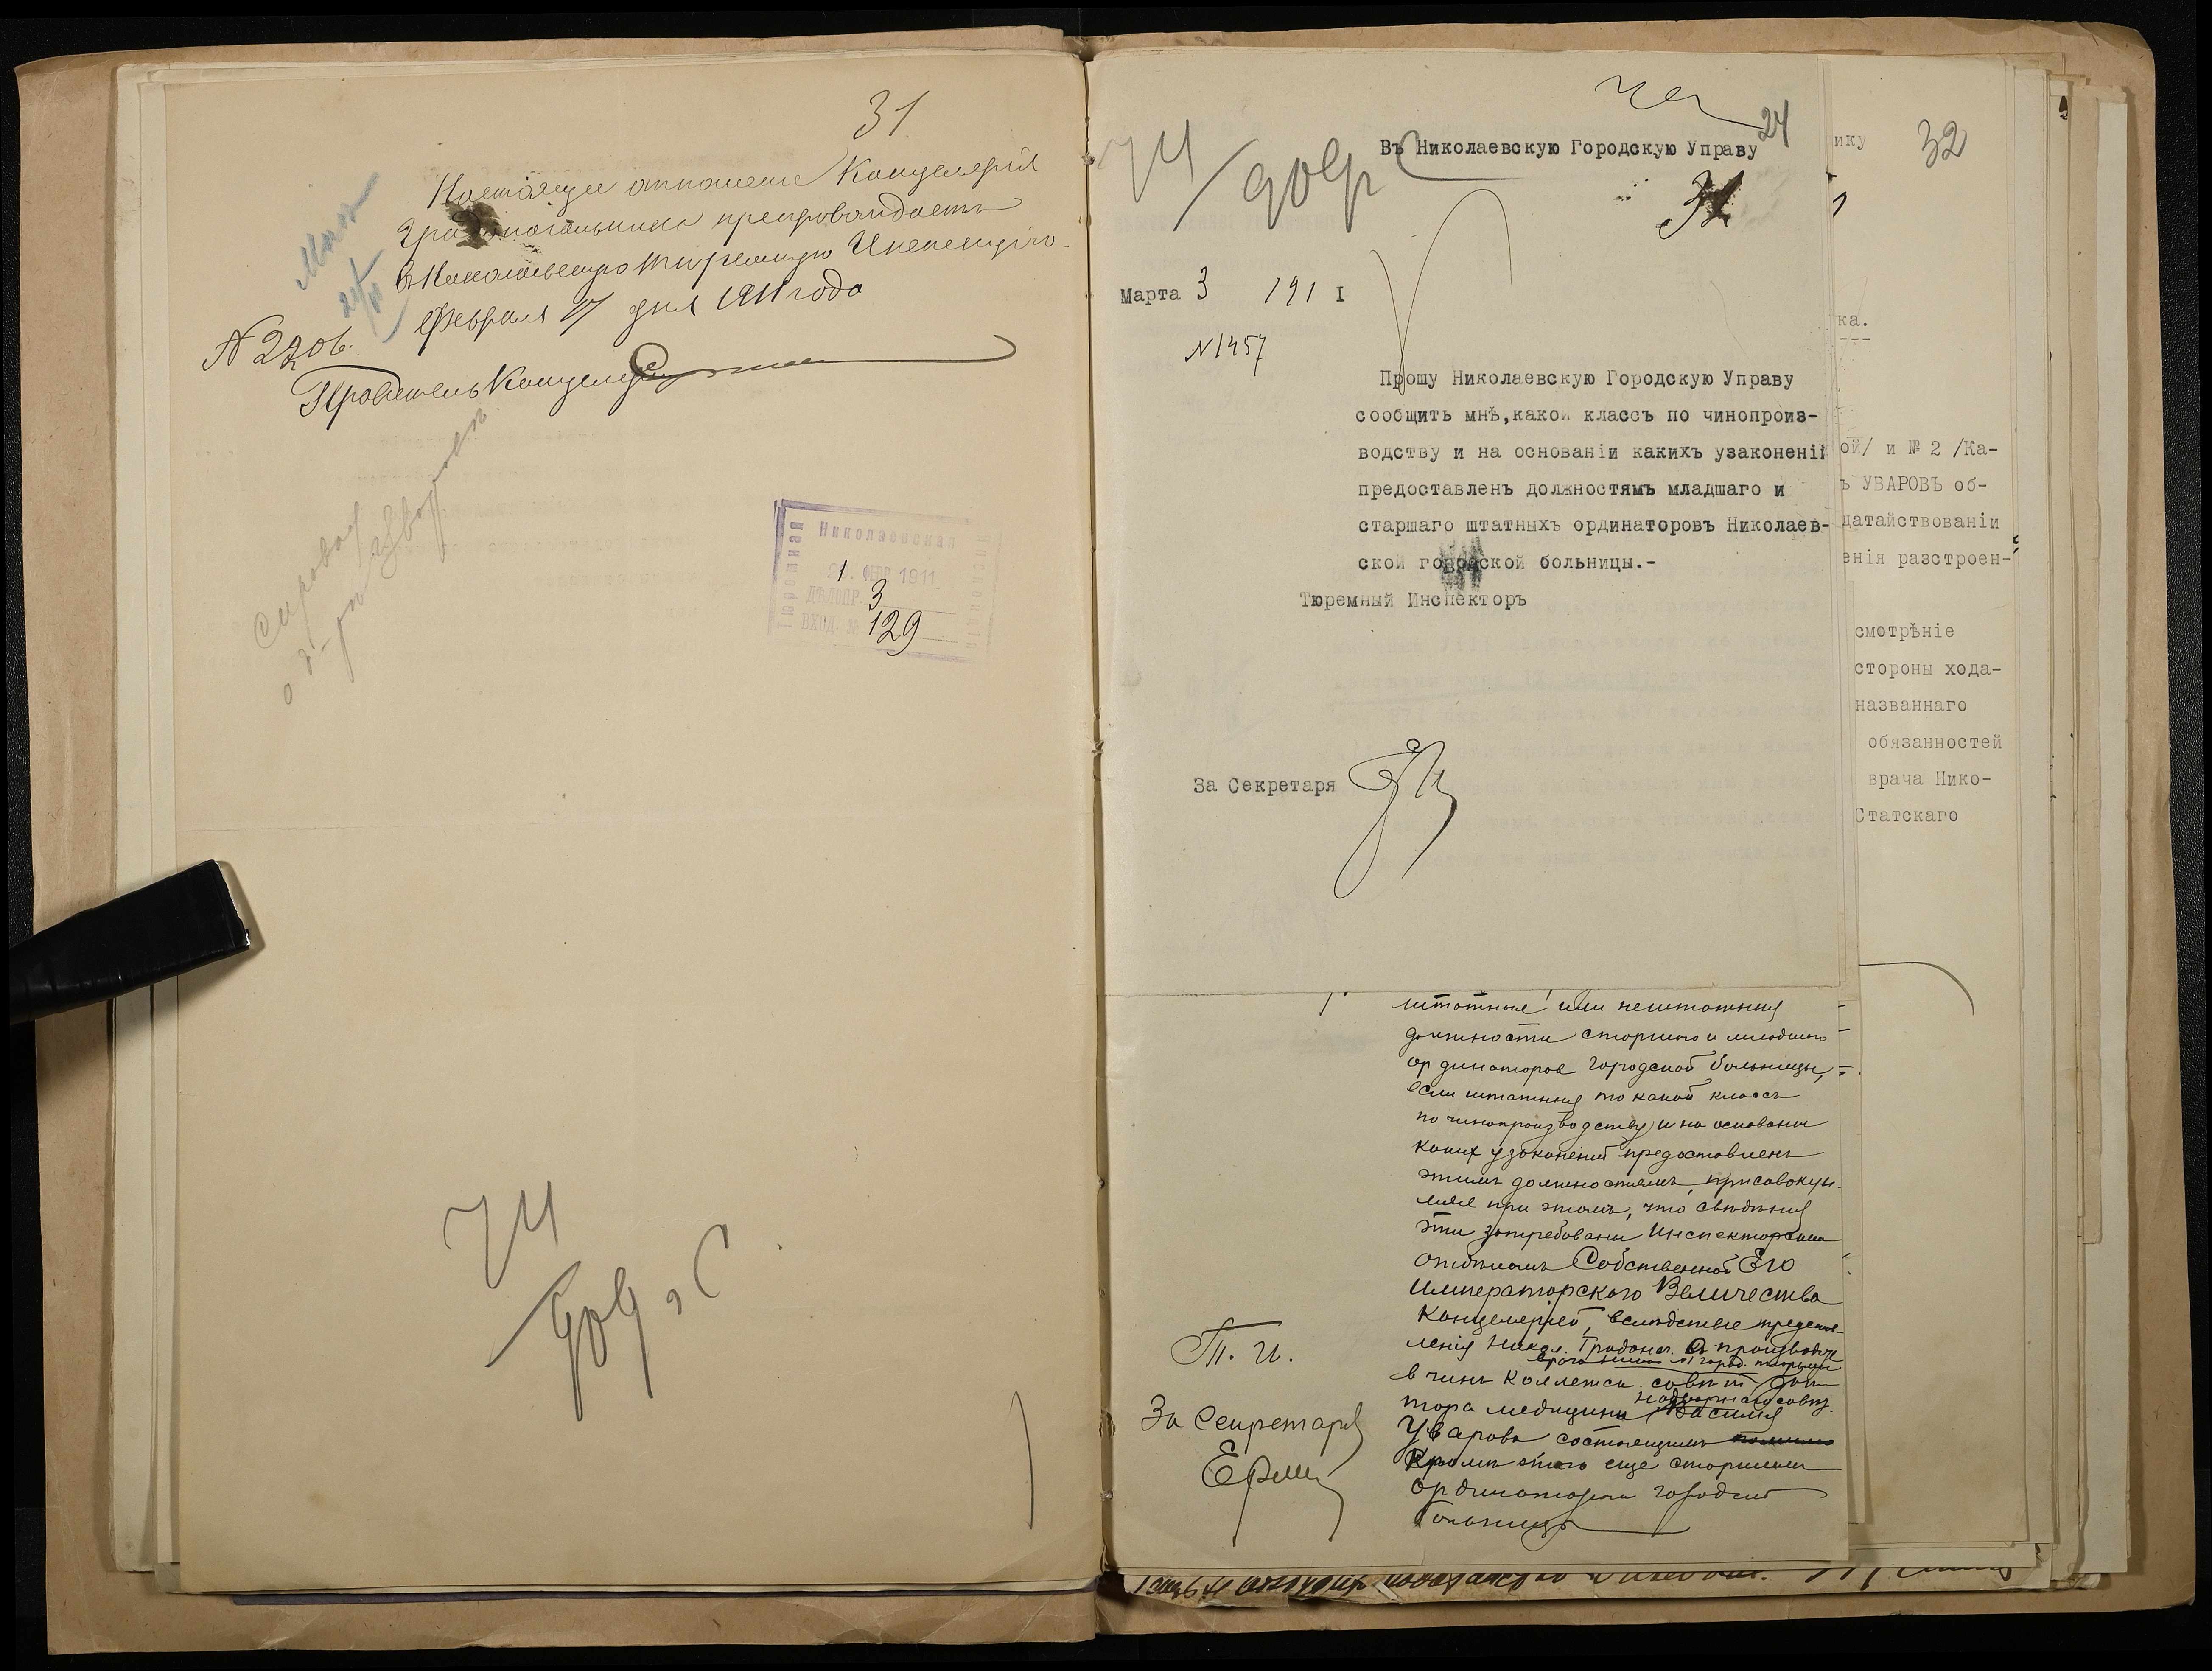 31
Настоящее отношение Канцелярія
Градоначальника препровождаетъ
в Николаевскую Тюремную Инспекцію.
Февраля 17 дня 1911 года
N 2206.
Правитель Канцеляріи
Николаевская
Тюремная
Инспекція
1911
ДѢЛОПР. 3
ВХОД. № 129
24
Въ Николаевскую Городскую Управу
31
Марта 3 191 I
N 1457
Прошу Николаевскую Городскую Управу
сообщить мнѣ,какой классъ по чинопроиз-
водству и на основаніи какихъ узаконеній
предоставленъ должностямъ младшаго и
старшаго штатныхъ ординаторовъ Николаев-
ской городской больницы.-
Тюремный Инспекторъ
За Секретаря
штатные или нештатныя
должности старшего и младшего
ординаторов городской больницы,
если штатныя то какой классъ
по чинопроизводству и на основании
каких узаконений предоставленъ
этимъ должностямъ, присовокуп-
ляя при этомъ, что свѣдѣния
эти затребованы Инспекторскимъ
отдѣломъ Собственной Его
Императорского Величества
Канцелярией, вслѣдствие представ-
ления Никол. Градонач. о производстве
в чинъ Коллежск. совѣт. док
надворнаго совѣт.
тора медицины Василия
Уварова состоящимъ
Кромѣ этого еще старшимъ
ординаторомъ городской
больницы
Т. И.
За Секретаря
ику
32
ка.
ой/ и № 2 /Ка-
ъ УВАРОВЪ об-
датайствованіи
енія разстроен-
смотрѣніе
стороны хода-
названнаго
обязанностей
врача Нико-
Статскаго